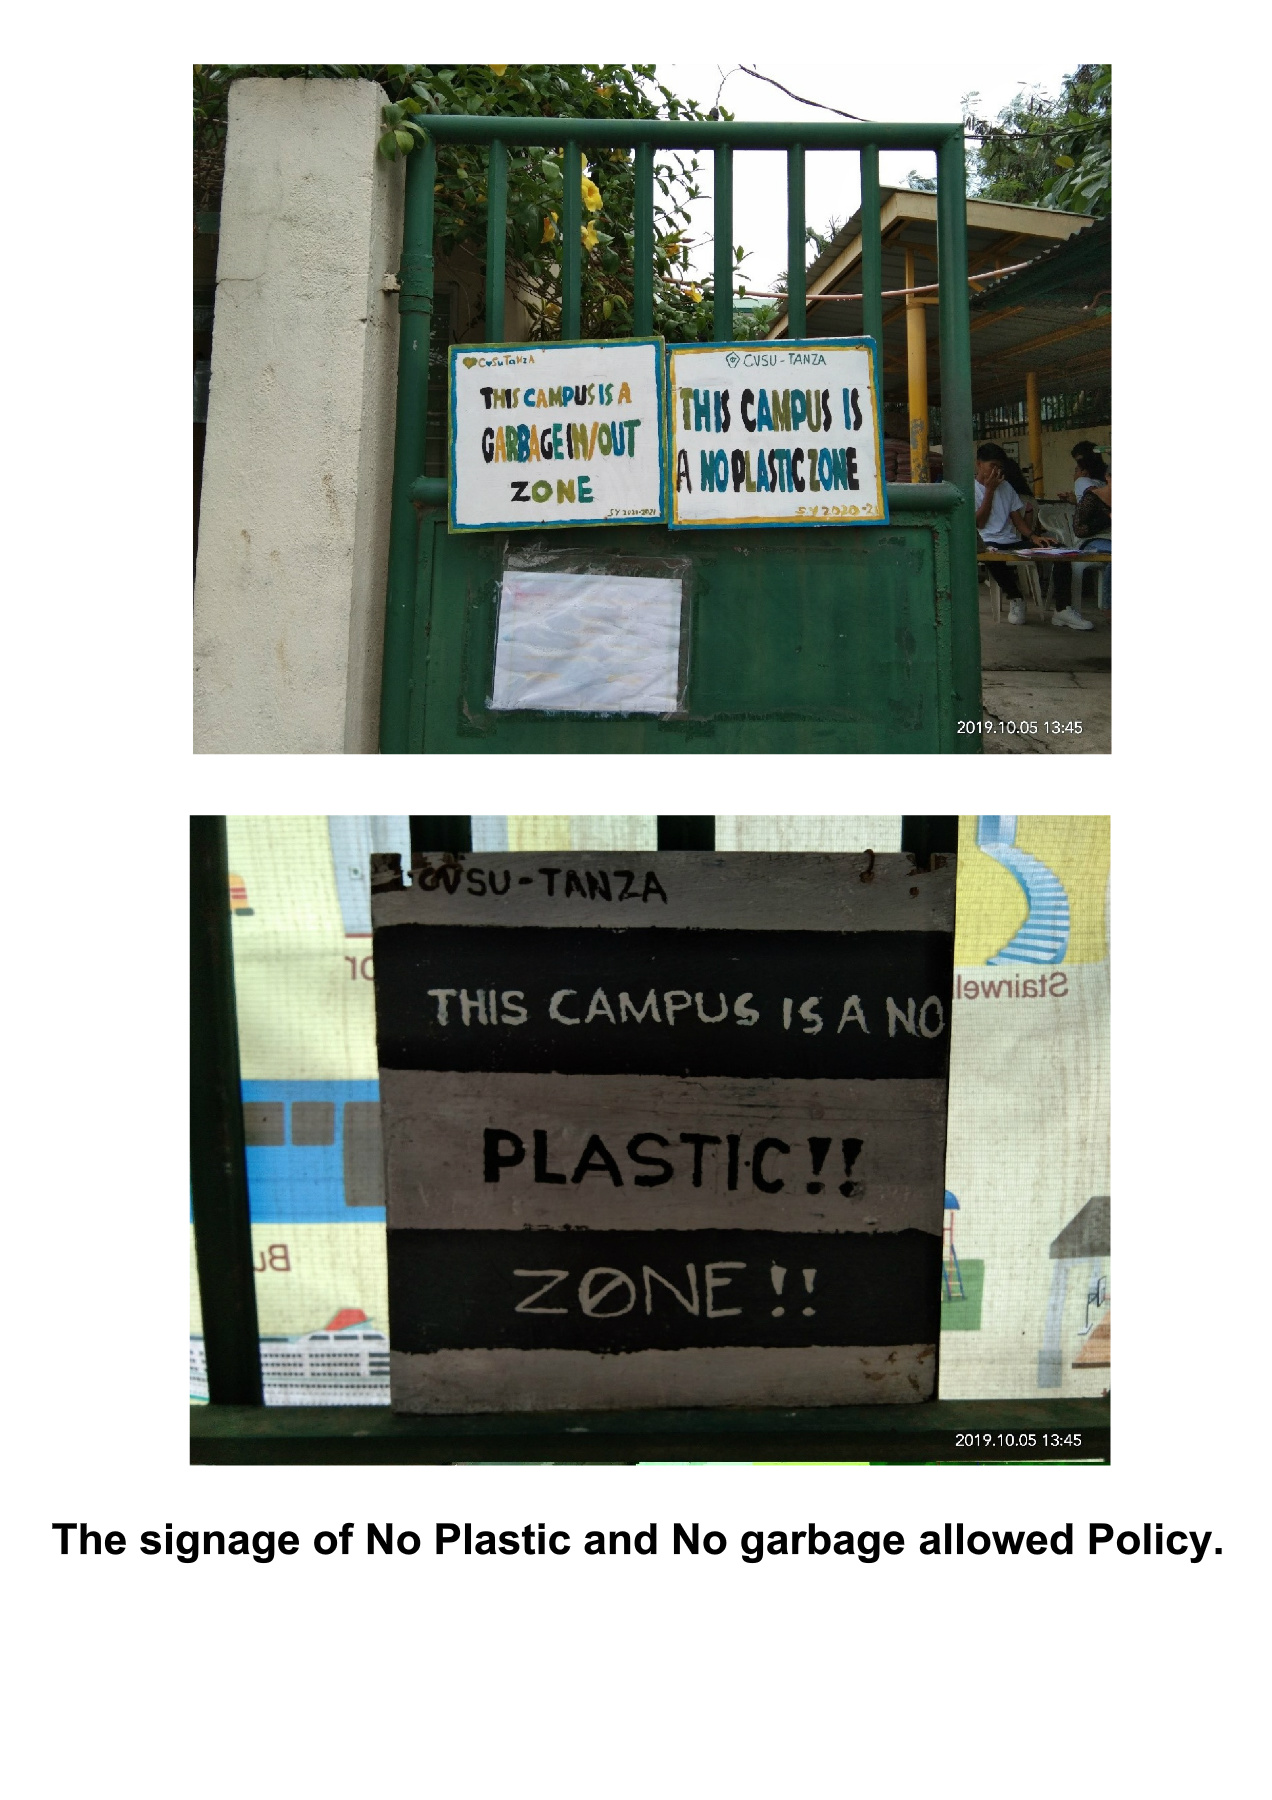 CvSU TaNzA
THIS CAMPUS IS A
GARBAGE IN/OUT
ZONE
SY 2020-2021
CVSU - TANZA
THIS CAMPUS IS
A NO PLASTIC ZONE
SY 2020-2
2019.10.05 13:45
CVSU-TANZA
THIS CAMPUS IS A NO
PLASTIC!!
ZONE!!
or
Stairwel
Bu
pl
2019.10.05 13:45
The signage of No Plastic and No garbage allowed Policy.